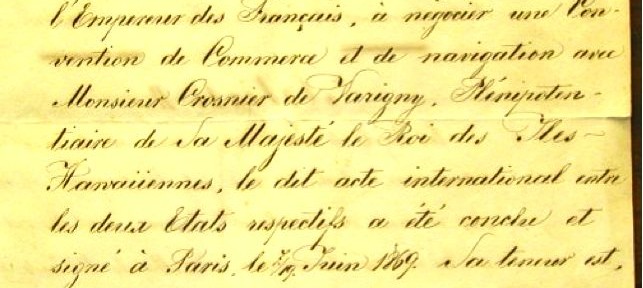 l'Empereur des Français, à négocier une Con-
vention de Commerce et de navigation avec
Monsieur Crosnier de Varigny, Plénipoten-
tiaire de Sa Majesté le Roi des Iles-
Hawaiiennes, le dit acte international entre
les deux Etats respectifs a été conclu et
signé à Paris, le 7/19 Juin 1869. Sa teneur est,